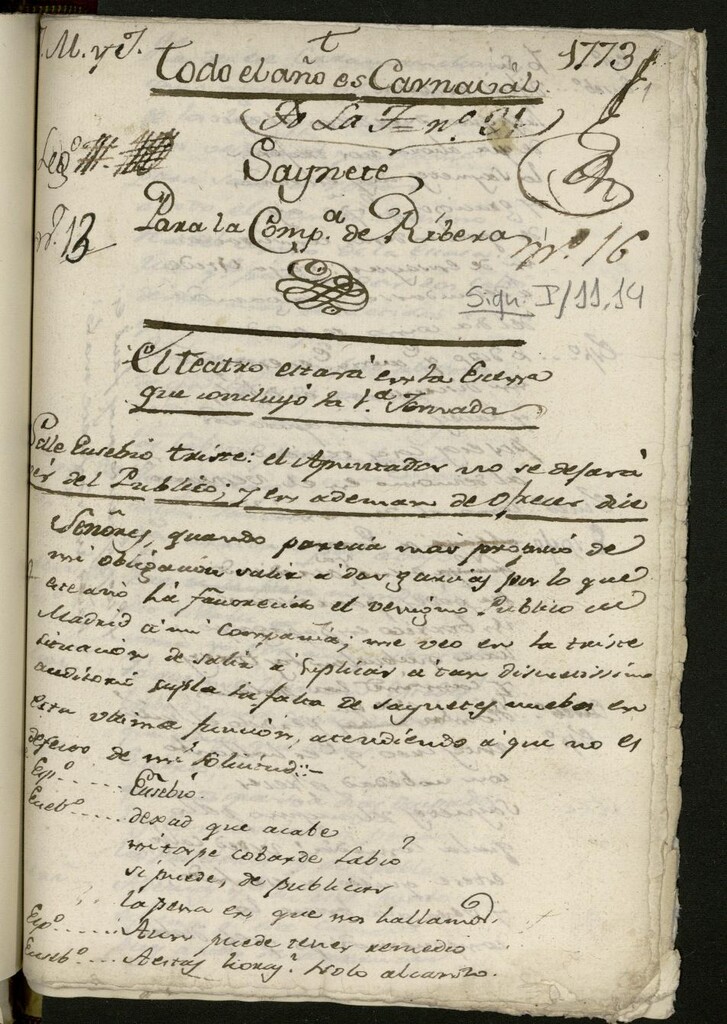 J. M. y J.
1773
Todo el año es Carnaval.
La 
Leg.º
Saynete
nº. 13
Para la Comp.ª de Ribera
nº. 16
Sign. I/11,14
El Teatro estará en la Escena
que concluyó la 1.ª Jornada
Salle Eusebio triste: el Apuntador no se dejará
ver del Publico; y en ademan de ofrecer dice
Señores, quando parecia mas propio de
mi obligación salir a dar gracias por lo que
este año ha favorecido el venigno Publico de
Madrid a mi Compañia; me veo en la triste
situacion de salir a suplicar a tan discretissimo
auditorio supla la falta de saynetes nuebos en
esta ultima funcion, atendiendo a que no es
defecto de mi solicitud:-
Esp.º .... Eusebio.
Euseb.º .... dexad que acabe
mi torpe cobarde labio
si puede, de publicar
la pena en que nos hallamos.
Esp.º .... Aun puede tener remedio
Euseb.º .... A estas horas?